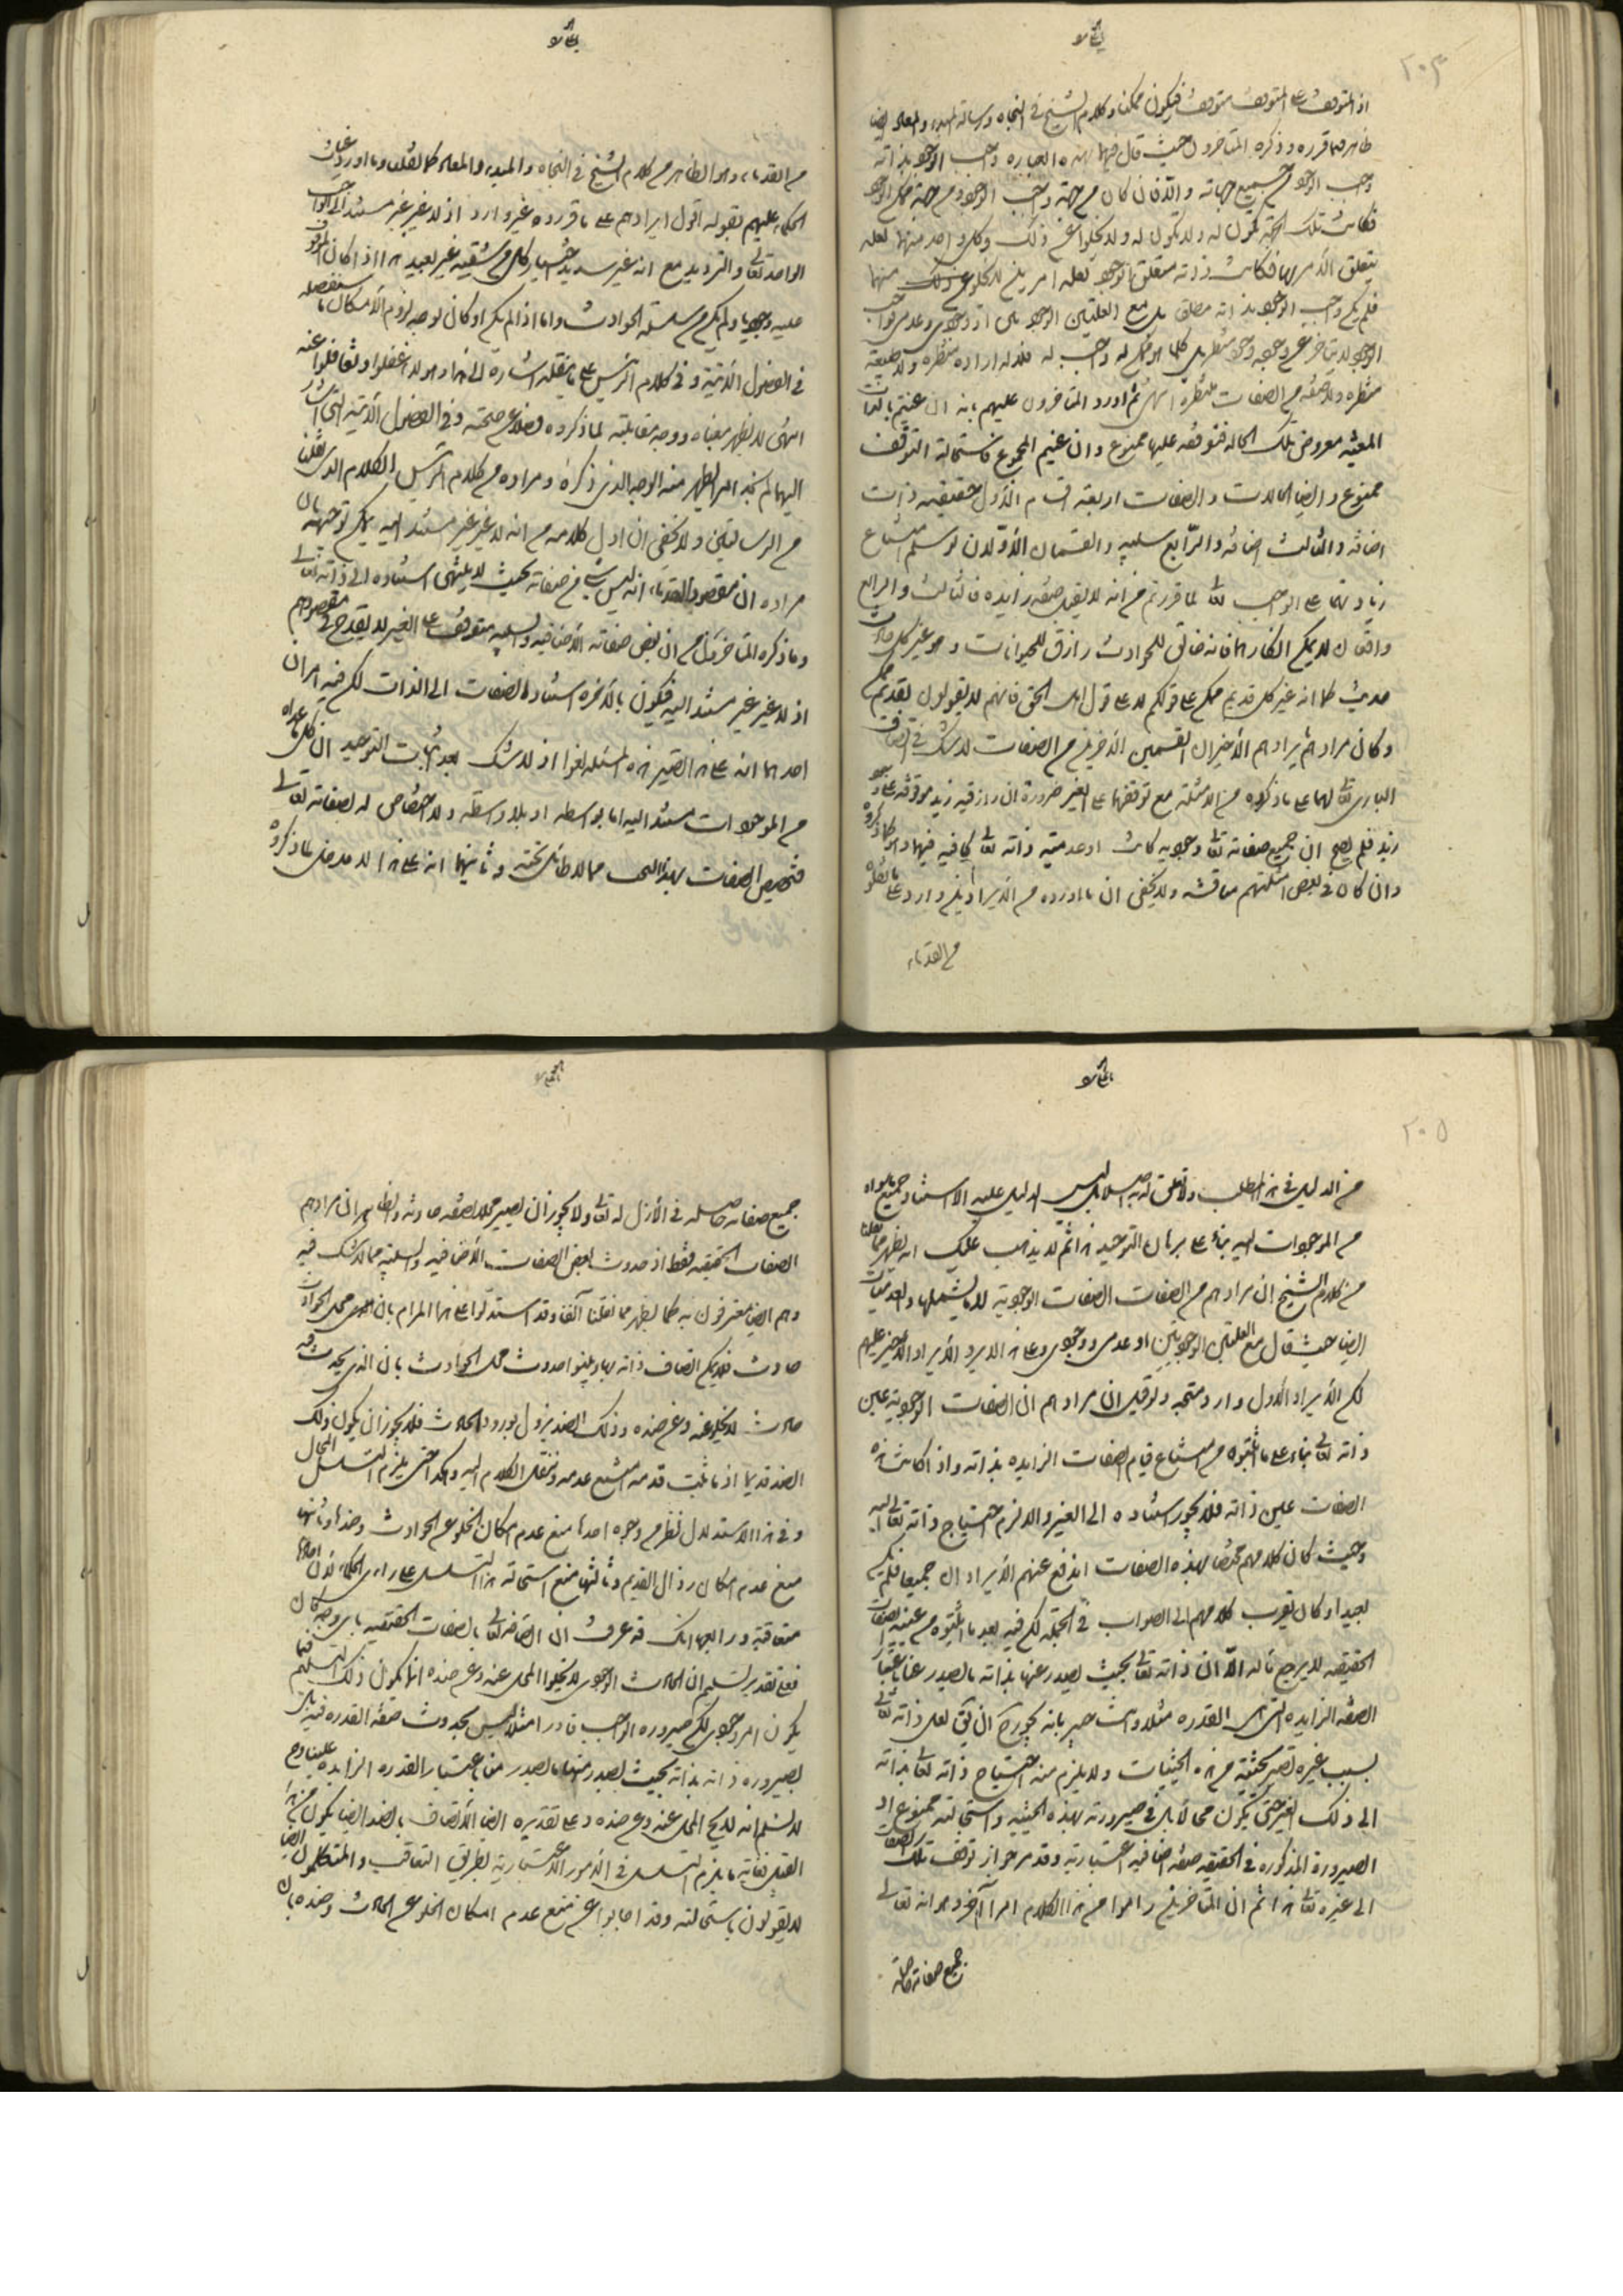 ٢٠٤
اذ المتوقف على المتوقف متوقف فيكون ممكنا وكلام الشيخ في النجاة ورسالة المبدء والمعاد ايضا
ظاهر فيما قرره وذكره المتاخرون حيث قال فيهما بهذه العبارة واجب الوجود بذاته
واجب الوجود من جميع جهاته والا فان كان من جهة واجب الوجود ومن جهة ممكن الوجود
فكانت تلك الجهة تكون له ولا يكون له ولا يخلوا عن ذلك وكل واحد منهما لعلة
يتعلق الامر بها فكانت ذاته متعلق الوجود بعلة امرين لا يخلو منها
فلم يكن واجب الوجود بذاته مطلق بل مع العلتين
الوجود لا يتاخر عن وجوده وجود منتظر بل كلما هو ممكن له واجب له فلا له ارادة منتظرة ولا طبيعة
منتظرة ولا صفة من الصفات منتظرة انتهى ثم اورد المتاخرون عليهم بانه ان عنيتم بالذات
المعينة معروض تلك الحالة فتوقفه عليها ممنوع وان عنيتم المجموع فاستحالة التوقف
ممنوع وايضا الحالات والصفات اربعة اقسام الاول حقيقية ذات
اضافة والثالث اضافة والرابع سلبية والقسمان الاولان لو سلم امتناع
زيادتهما على الواجب تعالى لما قررتم من انه لا يقبل صفة زايدة فالثالث والرابع
واقعان لا يمكن انكارهما فانه خالق للحوادث رازق للحيوانات وهو غير كل حادث
حديث كما انه غير كل قديم ممكن على قولكم لا على قول اهل الحق فانهم لا يقولون بقديم ممكن
وكان مرادهم بايرادهم الاخير ان القسمين الاخيرين من الصفات لا شك في اتصاف
الباري تعالى لهما على ما ذكروه من الامثلة مع توقفهما على الغير ضرورة ان رازقية زيد موقوفة على وجود
زيد فلم يصح ان جميع صفاته تعالى وجودية كانت او عدمية ذاته تعالى كافية فيها وهو كما ذكروه
وان كان في بعض امثلتهم مناقشة ولا يخفى ان ما اورده من الايرادين وارد على ما نقلوه
من القدماء
من القدماء وهو الظاهر من كلام الشيخ في النجاة والمبدء والمعاد كما نقلت وما اورد
الحكماء عليهم بقوله اقول ايرادهم على ما قرروه غير وارد اذ لا غير غير مستند الى الواجب
الواحد تعالى والترديد مع انه غير سديد اختيار كل من شقيه غير بعيد هذا اذا كان الموقوف
عليه وجوديا ولم يكن من سلسلة الحوادث واما اذا لم يكن او كان توجه لزوم الامكال ما ستفصله
في الفصول الاتية وفي كلام الرئيس على ما نقله اشارة الى هذا وهو لا غفلوا وتغافلوا عنه
انتهى لا يظهر معناه ووجه مقابلته لما ذكروه فضلا عن صحته وفي الفصول الاتية التي اشار
اليها لم نجد امرا يظهر منه الوجه الذي ذكره ومراده من كلام الرئيس الكلام الذي نقلنا
من الرسالتين ولا يخفى ان اول كلامه من انه لا غير غير مستند اليه يمكن توجيهه بان
مراده ان مقصود القدماء انه ليس شي من صفاته بحيث لا ينتهى استناده الى ذاته تعالى
وما ذكره المتاخرون من ان بعض صفاته الاضافية والسلبية متوقف على الغير لا يقدح في مقصودهم
اذ لا غير غير مستند اليه فيكون بالاخرة استناد الصفات الى الذات لكن فيه امران
احدهما انه على هذا يصير هذه المسئلة لغوا اذ لا شك بعد اثبات التوحيد ان كل ما عداه
من الموجودات مستند اليه اما بواسطة او بلا واسطة ولا اختصاص له بصفاته تعالى
فتخصيص الصفات بهذا البحث مما لا طائل تحته وثانيهما انه على هذا لا مدخل لما ذكروه
٢٠٥
من الدليل في هذا المطلب ولا تعلق له به اصلا بل ليس الدليل عليه الا استناد جميع ما سواه
من الموجودات اليه بناء على برهان التوحيد هذا ثم لا يذهب عليك انه يظهر مما نقلنا
من كلام الشيخ ان مرادهم من الصفات الصفات الوجودية لا ما يشملها والعدميات
ايضا حيث قال مع العلتين الوجوديتين او عدمي ووجودي وعلى هذا لا يرد الايراد الاخير عليهم
لكن الايراد الاول وارد متجه ولو قيل ان مرادهم ان الصفات الوجودية عين
ذاته تعالى بناء على ما اثبتوه من امتناع قيام الصفات الزايدة بذاته واذا كانت هذه
الصفات عين ذاته فلا يجوز استناده الى الغير والا لزم احتياج ذاته تعالى اليه
وحيث كان كلامهم مختصا بهذه الصفات اندفع عنهم الايرادان جميعا فلم يكن
بعيدا وكان يقرب كلامهم الى الصواب في الجملة لكن فيه بعد ما اثبتوه من عينية الصفات
الحقيقية لا يرجع ماله الا ان ذاته تعالى بحيث يصدر عنها بذاته ما يصدر عنا باعتبار
الصفة الزايدة التي هي القدرة مثلا وانت خبير بانه يجوز ح ان يق لعل ذاته تعالى
بسبب غيره تصير بحيثية من هذه الحيثيات ولا يلزم منه احتياج ذاته تعالى بذاته
الى ذلك الغير حتى يكون محالا بل في صيرورته بهذه الحيثية واستحالته ممنوع اذ
الصيرورة المذكورة في الحقيقة صفة اضافية اعتبارية وقد مر جواز توقف تلك الصفات
الى غيره تعالى هذا ثم ان المتاخرين راموا من هذا الكلام امرا آخر وهو انه تعالى
جميع صفاته حاصلة
جميع صفاته حاصلة في الازل له تعالى ولا يجوز ان يصير محلا لصفة حادثة والظاهر ان مرادهم
الصفات الحقيقية فقط اذ حدوث بعض الصفات الاضافية والسلبية مما لا شك فيه
وهم ايضا معترفون به كما يظهر مما نقلنا آنفا وقد استدلوا على هذا المرام بان محل الحوادث
حادث فلا يمكن اتصاف ذاته بها وبينوا حدوث محل الحوادث بان الذي يحدث فيه
حادث لا يخلو عنه وعن ضده وذلك الضد يزول بورود الحادث فلا يجوز ان يكون ذلك
الضد قديما اذ ما ثبت قدمه امتنع عدمه وننقل الكلام اليه وهكذا حتى يلزم التسلسل المحال
وفي هذا الاستدلال نظر من وجوه احدها منع عدم امكان الخلو عن الحوادث وضدها وثانيها
منع عدم امكان زوال القديم وثالثها منع استحالة هذا التسلسل على راي الحكماء لان احادها
متعاقبة ورابعها انك قد عرفت ان اتصافه تعالى بالصفات الحقيقية باي وجه كان
فعلى تقدير تسليم ان الحادث الوجودي لا يخلوا المحل عنه وعن ضده انما يكون ذلك التسليم فيما
يكون امر وجودي لكن صيرورة الواجب قادرا مثلا ليس بحدوث صفة القدرة فيه بل
بصيرورة ذاته بذاته بحيث يصدر منها ما يصدر منا باعتبار القدرة الزايدة علينا وح
لا نسلم انه لا يخ المحل عنه وعن ضده وعلى تقديره ايضا الاتصاف بالضد ايضا يكون من هذا
القبيل فغاية ما يلزم التسلسل في الامور الاعتبارية بطريق التعاقب والمتكلمون ايضا
لا يقولون باستحالته وقد اجابوا عن منع عدم امكان الخلو عن الحادث وضده بان